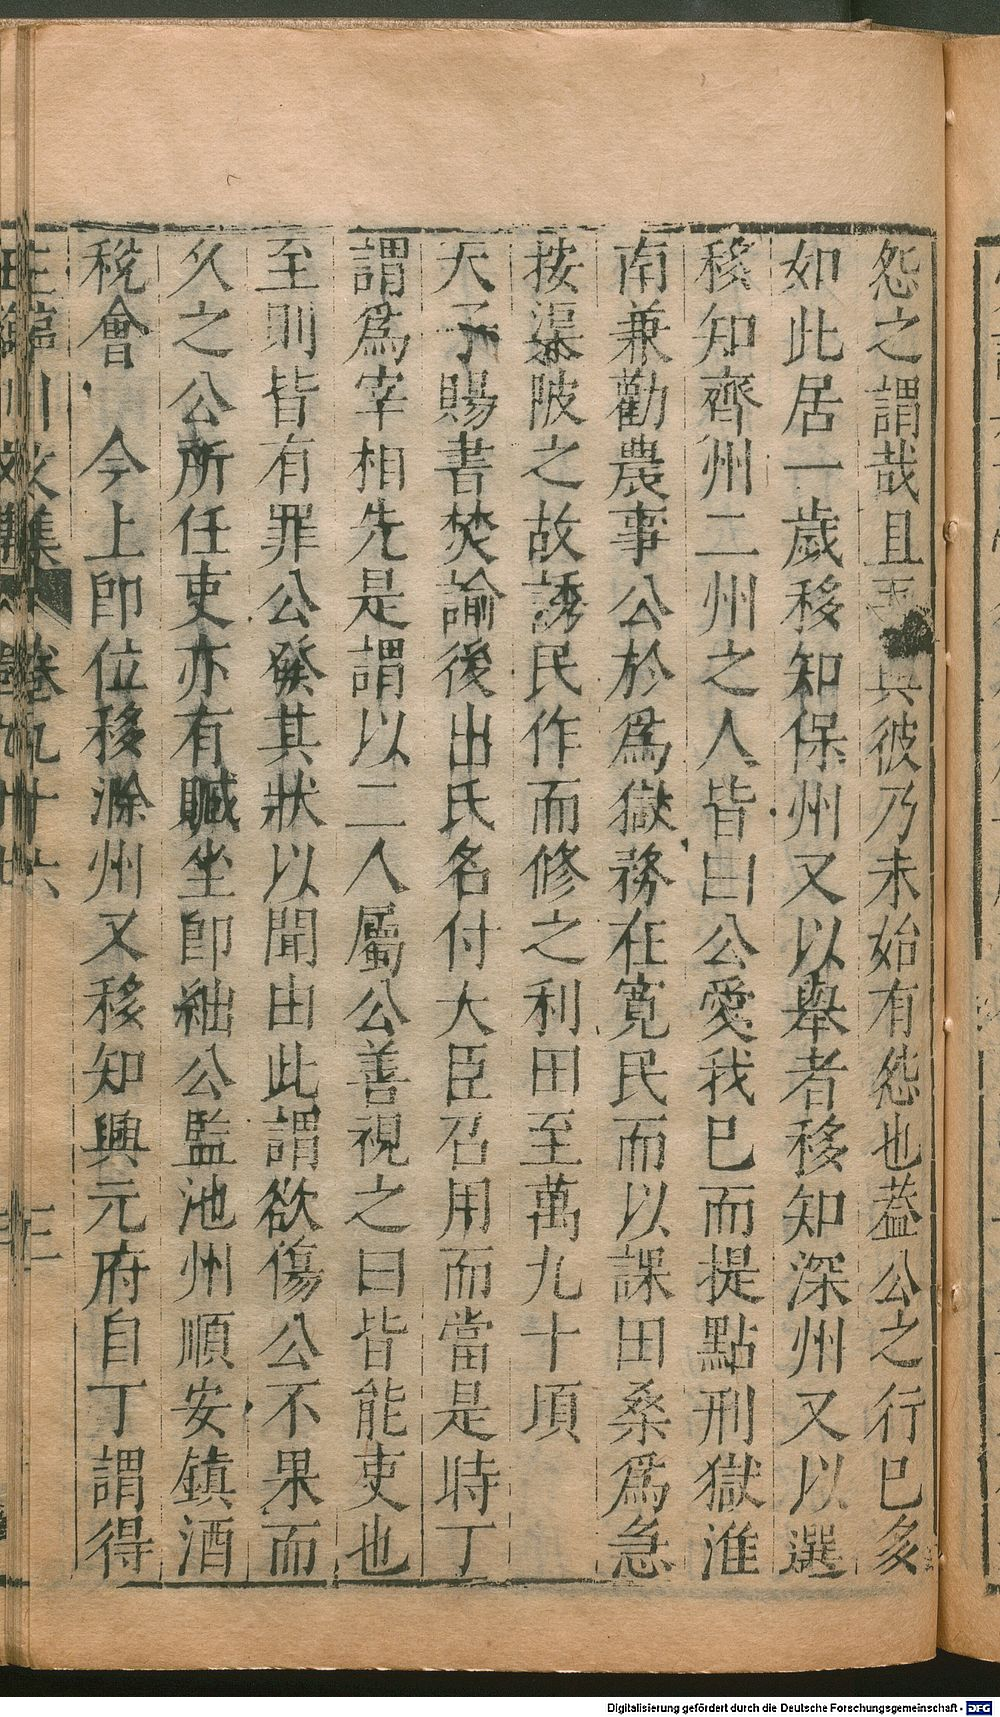 怨之謂哉且與彼乃未始有怨也葢公之行巳多
如此居一歲移知保州又以舉者移知深州又以選
移知齊州二州之人皆曰公愛我巳而提點刑獄淮
南兼勸農事公於爲獄務在寬民而以課田桑爲急
按渠陂之故誘民作而修之利田至萬九十頃
天子賜書奬諭後出氏名付大臣召用而當是時丁
謂爲宰相先是謂以二人屬公善視之曰皆能吏也
至則皆有罪公發其狀以聞由此謂欲傷公不果而
久之公所任吏亦有贓坐卽絀公監池州順安鎮酒
稅會 今上卽位移滁州又移知興元府自丁謂得
王臨川文集 卷九十六 三
Digitalisierung gefördert durch die Deutsche Forschungsgemeinschaft - DFG